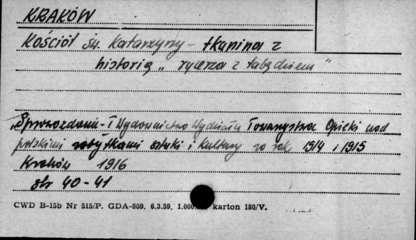 KRAKÓW
Kościół św. Katarzyny - tkanina z
historią „rycerza z łabędziem"
„Sprawozdanie - i Wydawnictwo Wydziału Towarzystwa Opieki nad
polskimi zabytkami sztuki i kultury za rok 1914 i 1915
Kraków 1916
str 40-41
CWD B-15b Nr 515/P. GDA-809. 6.3.59. karton 180/V.